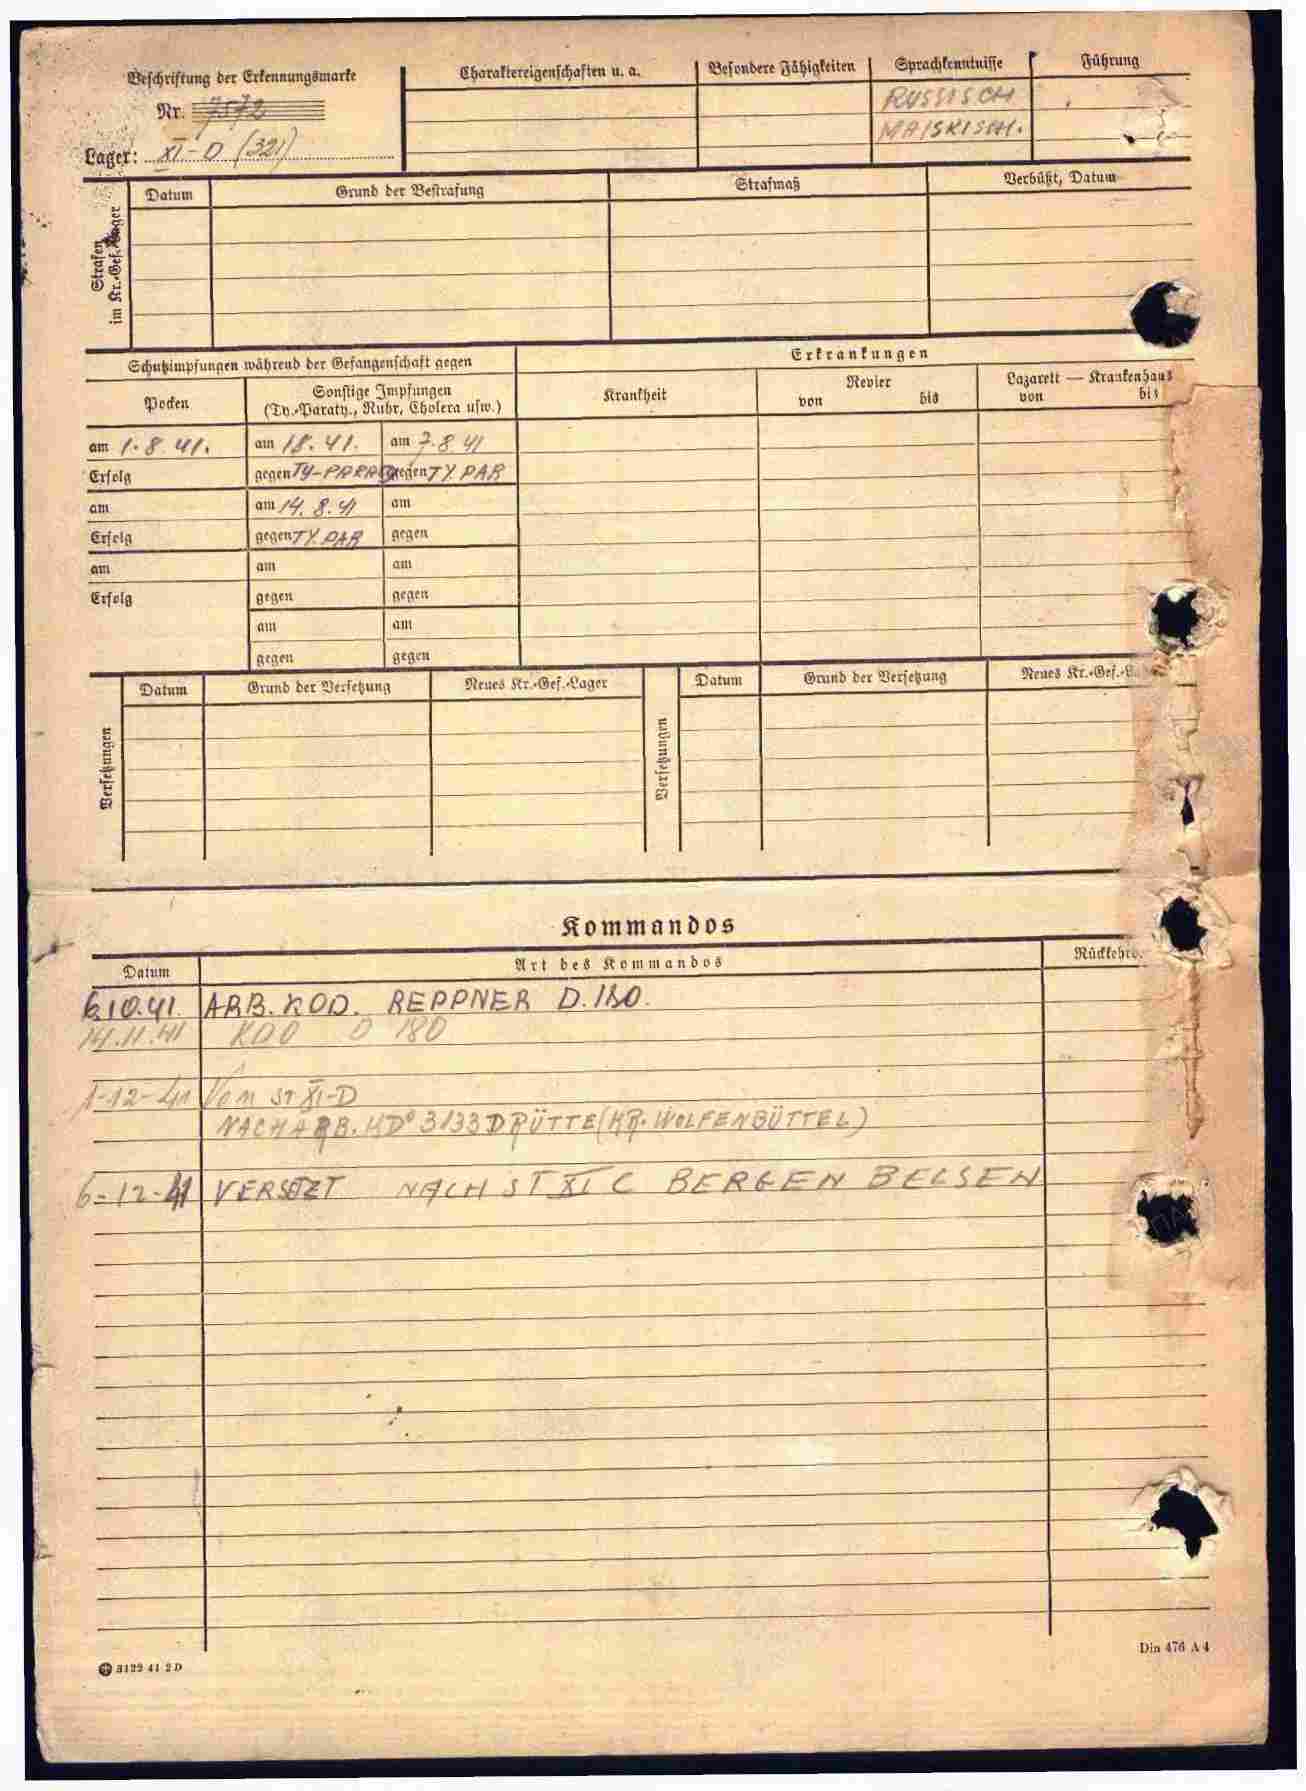 Beschriftung der Erkennungsmarke
Nr. 7572
Lager: XI-D (321)
Charaktereigenschaften u. a.
Besondere Fähigkeiten
Sprachkenntnisse
RUSSISCH
MAISKISCH.
Führung
Strafen im Kr.-Gef.-Lager
Datum Grund der Bestrafung Strafmaß Verbüßt, Datum
Schutzimpfungen während der Gefangenschaft gegen
Erkrankungen
Pocken
Sonstige Impfungen
(Ty.-Paraty., Ruhr, Cholera usw.)
Krankheit
Revier
von bis
Lazarett — Krankenhaus
von bis
am 1.8.41. am 18.41. am 7.8.41
Erfolg gegen TY-PARA gegen TY.PAR
am am 14.8.41 am
Erfolg gegen TY.PAR gegen
am am am
Erfolg gegen gegen
am am
gegen gegen
Versetzungen
Datum Grund der Versetzung Neues Kr.-Gef.-Lager
Versetzungen
Datum Grund der Versetzung Neues Kr.-Gef.-L
Kommandos
Datum Art des Kommandos Rückkehr
6.10.41. ARB.KOD. REPPNER D.180.
14.11.41 KDO D 180
1-12-41 Von ST XI-D
NACH ARB. KDO 3133 DRÜTTE (KR. WOLFENBÜTTEL)
6-12-41 VERSETZT NACH ST XI C BERGEN BELSEN
3122 41 2 D
Din 476 A 4